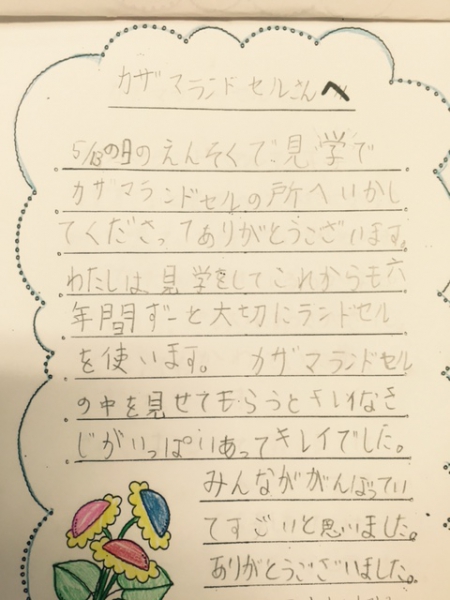 カザマランドセルさんへ
5/13の日のえんそくで見学で
カザマランドセルの所へいかし
てくださってありがとうございます。
わたしは見学をしてこれからも六
年間ずーと大切にランドセル
を使います。 カザマランドセル
の中を見せてもらうとキレイなき
じがいっぱいあってキレイでした。
みんながかんばってい
てすごいと思いました。
ありがとうございました。